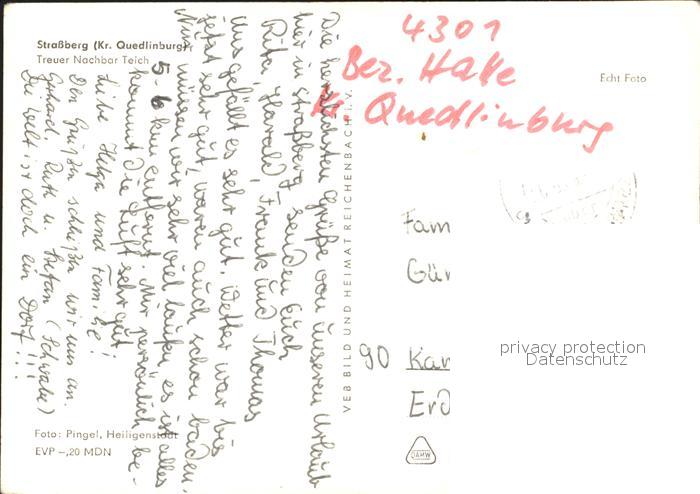 Straßberg (Kr. Quedlinburg)
Treuer Nachbar Teich
4301
Bez. Halle
Kr. Quedlinburg
Echt Foto
Die herzlichsten Grüße von unseren Urlaub
hier in Straßberg senden Euch
Rita, Harald, Frank und Thomas
Uns gefällt es sehr gut. Wetter war bis
jetzt sehr gut, waren auch schon baden.
Nur müssen wir sehr viel laufen, es ist alles
5-6 km entfernt. Mir persönlich be-
kommt die Luft sehr gut.
Liebe Helga und Familie!
Den Grüßen schließen wir uns an.
Gerhard, Ruth u. Stefan (Schwabe)
Die Welt ist doch ein Dorf!!!
VEB BILD UND HEIMAT REICHENBACH I. V.
Fam
Gür
90 Kar
Erd
privacy protection
Datenschutz
Foto: Pingel, Heiligenstadt
EVP –,20 MDN
DAMW